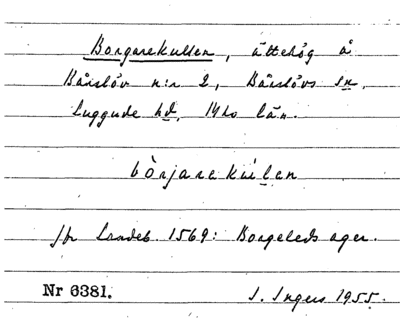 Borgarekullen, ättehög å
Bårslöv n:r 2, Bårslövs sn,
Luggude hd, Mhs län.
bòrjarekúlen
jfr Landeb. 1569: Borgeleds ager.
Nr 6381. I. Ingers 1955.